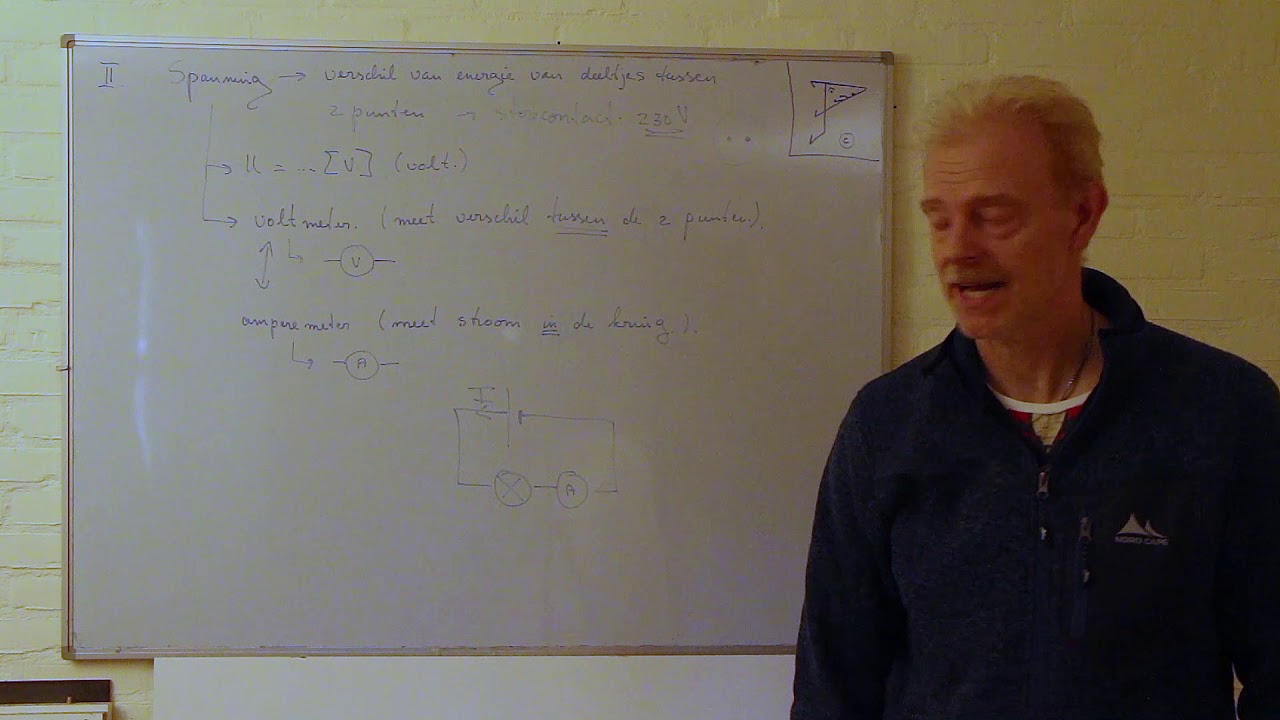 II. Spanning → verschil van energie van deeltjes tussen
2 punten → stopcontact: 230 V
→ U = ... [V] (volt.)
→ voltmeter. (meet verschil tussen de 2 punten.).
V
amperemeter (meet stroom in de kring.).
A
I
A
©
NORD CAPE